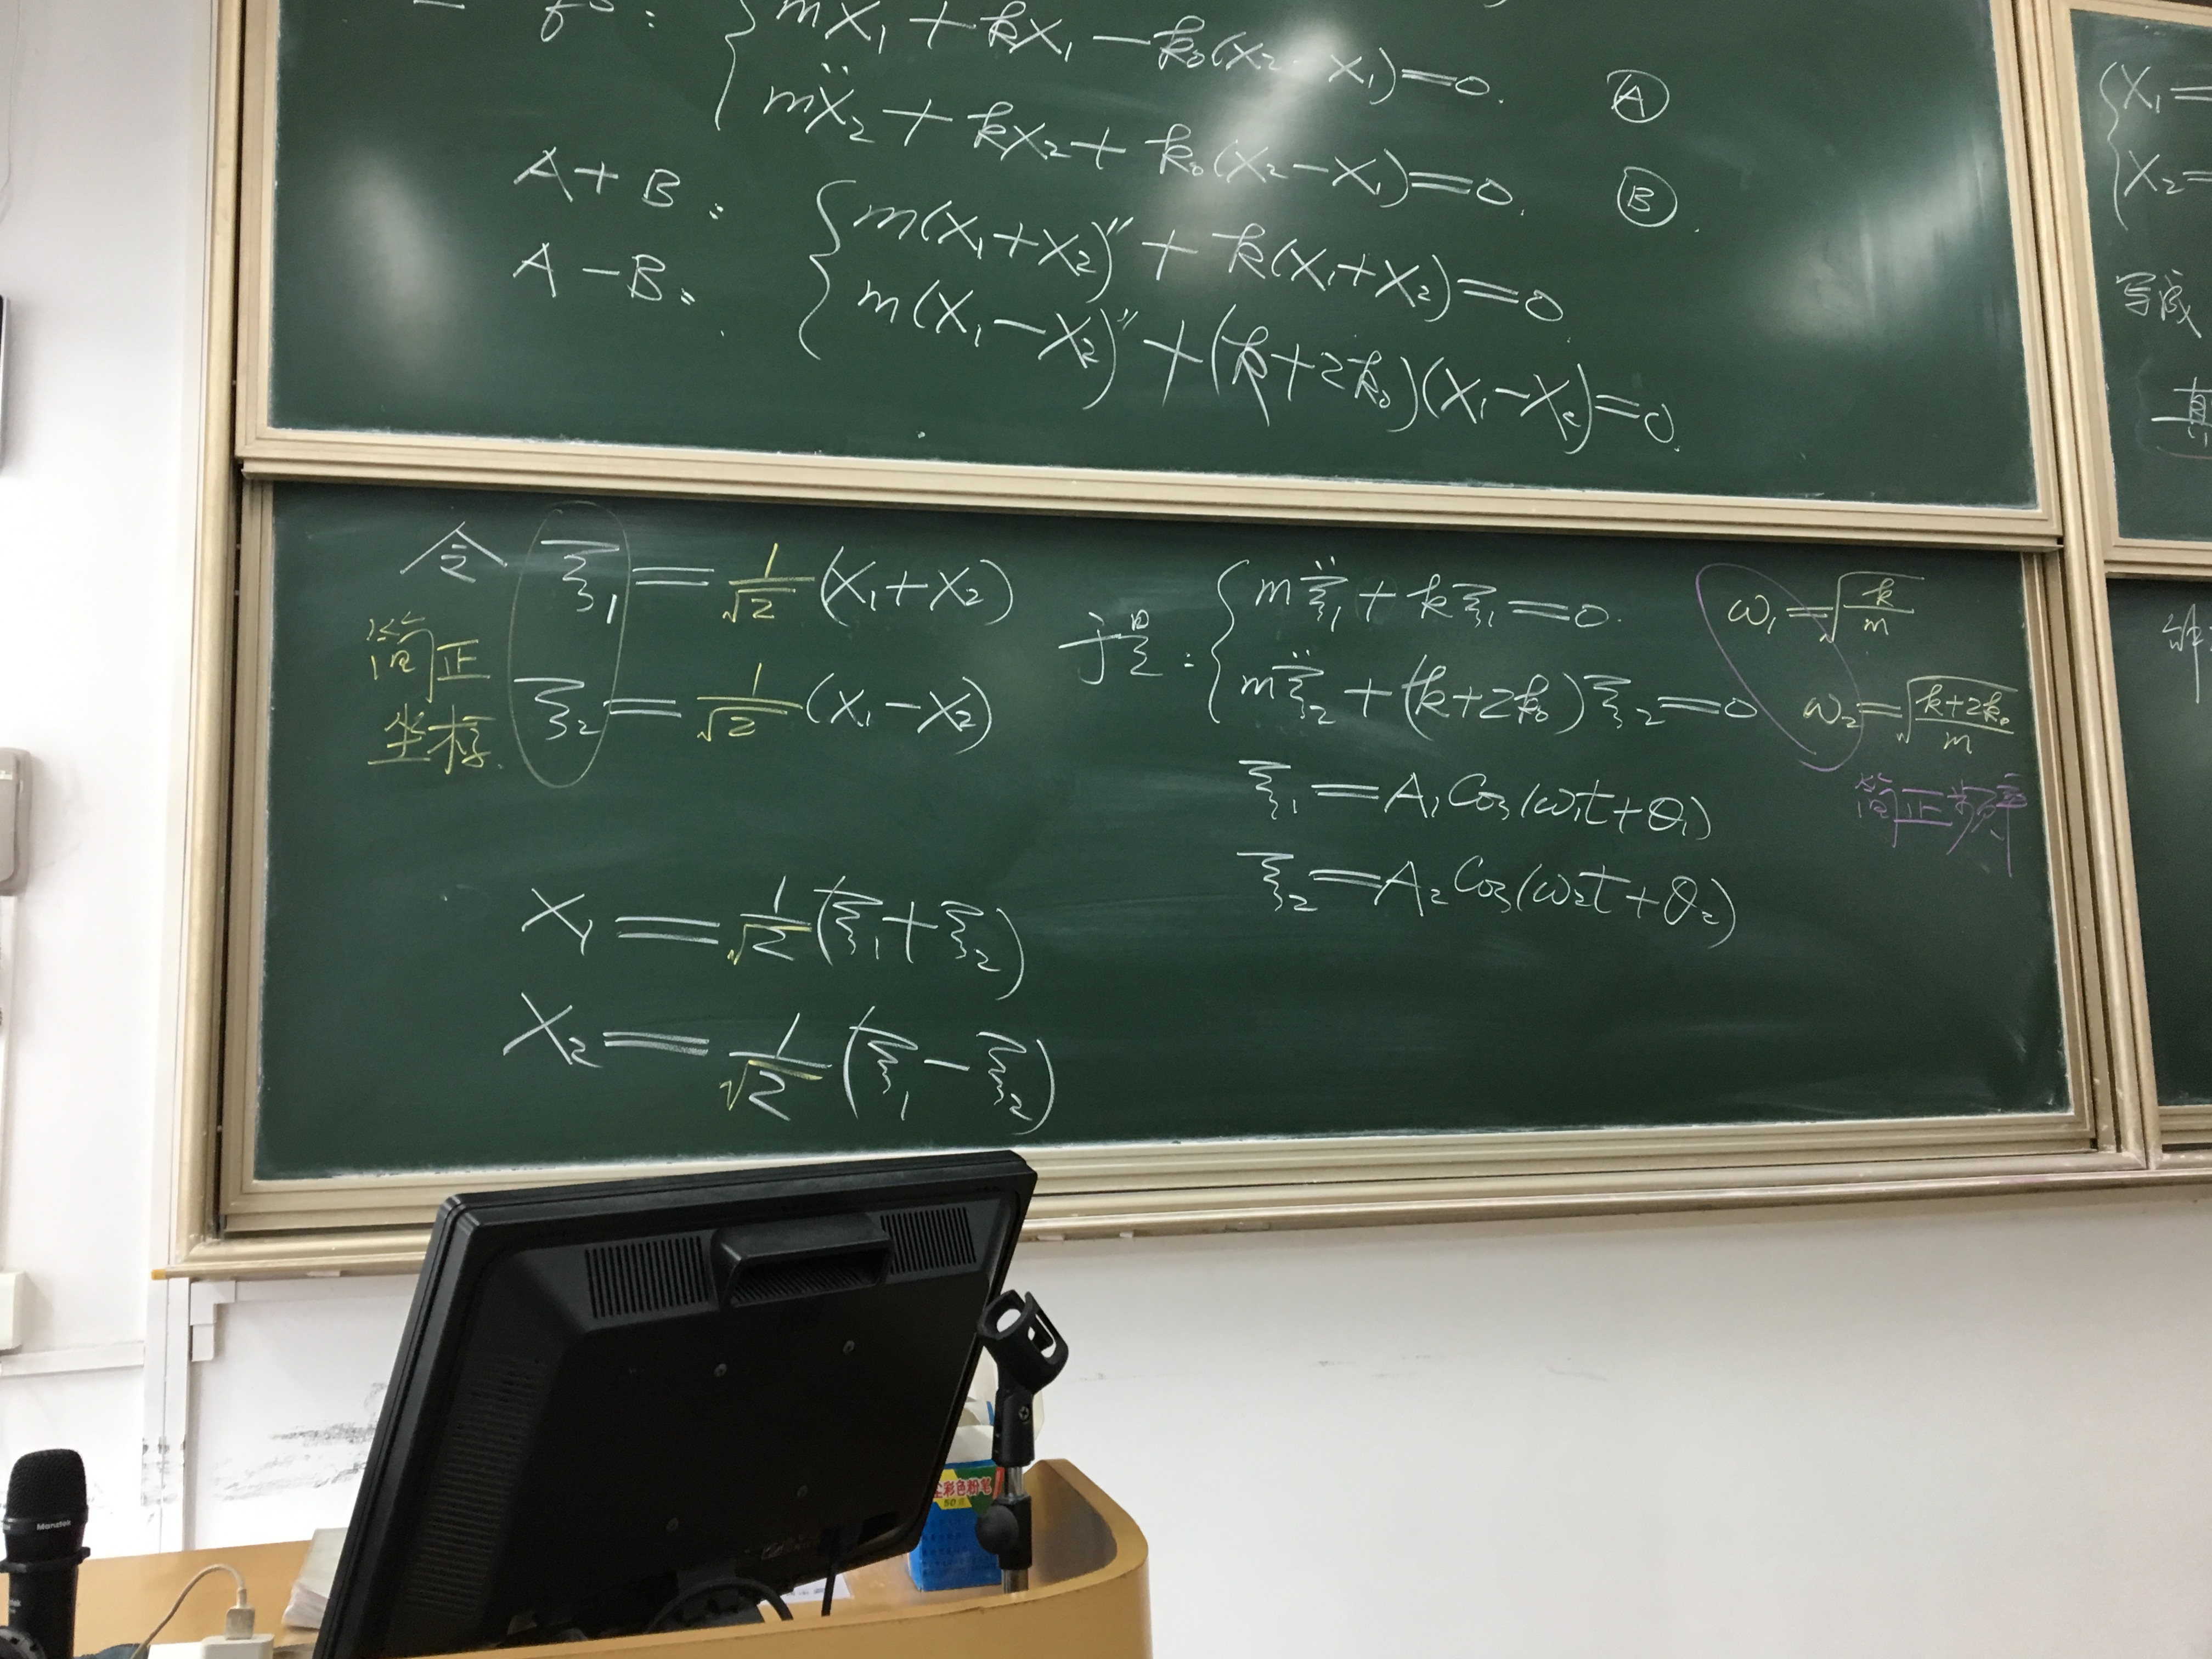 mẍ₁ + kx₁ − k₀(x₂ − x₁) = 0. Ⓐ
mẍ₂ + kx₂ + k₀(x₂ − x₁) = 0. Ⓑ
A + B: m(x₁+x₂)'' + k(x₁+x₂) = 0
A − B: m(x₁−x₂)'' + (k+2k₀)(x₁−x₂) = 0.
令 ξ₁ = 1/√2 (x₁+x₂)
ξ₂ = 1/√2 (x₁−x₂)
简正
坐标
x₁ = 1/√2 (ξ₁+ξ₂)
x₂ = 1/√2 (ξ₁−ξ₂)
于是: mξ̈₁ + kξ₁ = 0. ω₁ = √(k/m)
mξ̈₂ + (k+2k₀)ξ₂ = 0 ω₂ = √((k+2k₀)/m)
简正频率
ξ₁ = A₁ Cos(ω₁t+θ₁)
ξ₂ = A₂ Cos(ω₂t+θ₂)
x₁ =
x₂ =
写成
解
彩色粉笔
50
Manztek